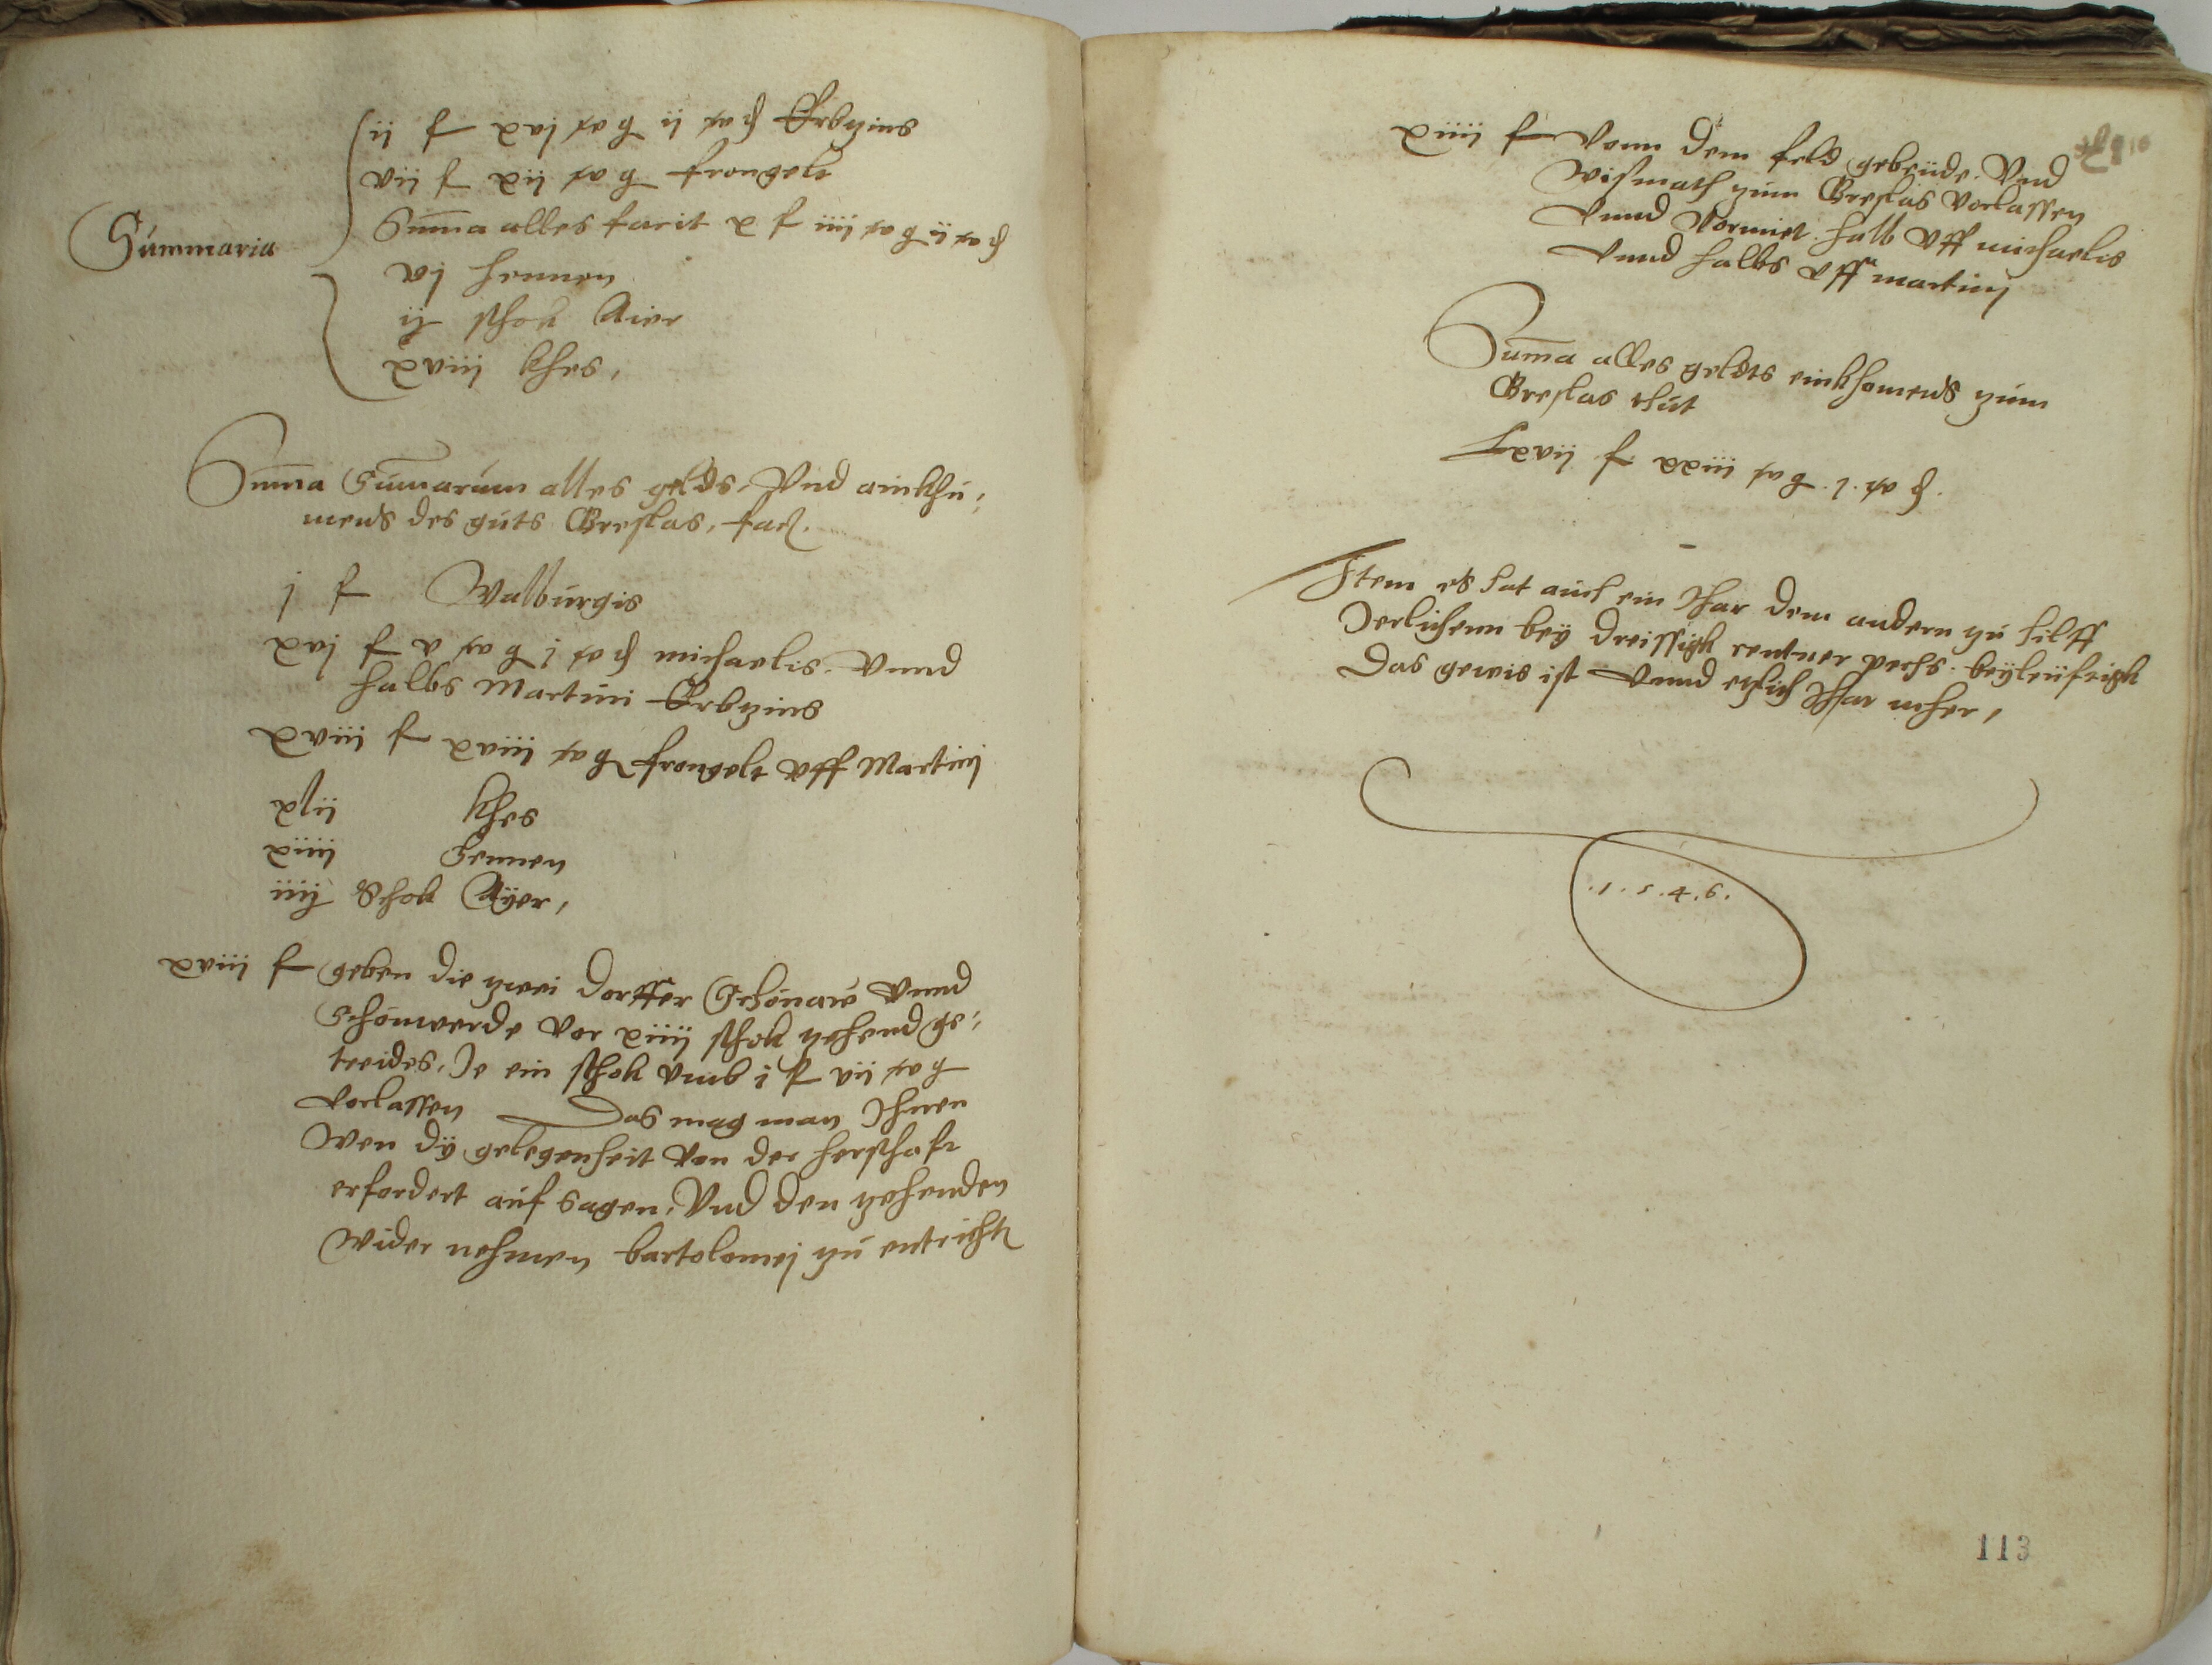 ij f xvj w g ij w h Erbzins
vij f xij w g frongelt
Sum̄a alles facit x f iiij w g ij w h
Summaria
vj hennen
ij schok Aier
xviij khes,
Sum̄a Sum̄arum alles gelds, Vnd einkhu,,
mens des guts Greslas, fac.
j f Walburgis
xvj f v w g j w h michaelis. vnnd
halbs Martini Erbzins
xviij f xviij w g frongelt vff Martinj
xlij khes
xiiij hennen
iiij Schok Ayer,
xviij f geben die zwei dorffer Schönaw vnnd
Schönwerde vor xiiij schok zehend ge,,
treides, Je ein schok vmb j f vij w g
vorlassen Das mag man Ihnen
Wen dÿ gelegenheit von der herschaft
erfordert auf sagen, Vnd den zehenden
Wider nehmen bartolomej zu entricht
xiiij f vonn dem feld gebeude. Vnd
Wismath zum Greslas vorlassen
vnnd vormiet. halb vff michaelis
vnnd halbs vff martinj
Sum̄a alles geldts einkhomends zum
Greslas thut
Lxvij f xxiij w g . 1 . w h .
Item es hat auch ein Jhar dem andern zu hilff
Jerlichenn beÿ dreissigk centner pechs. beÿleufftigk
Das gewis ist vnnd etzlich Jhar mher,
.1.5.4.6.
113